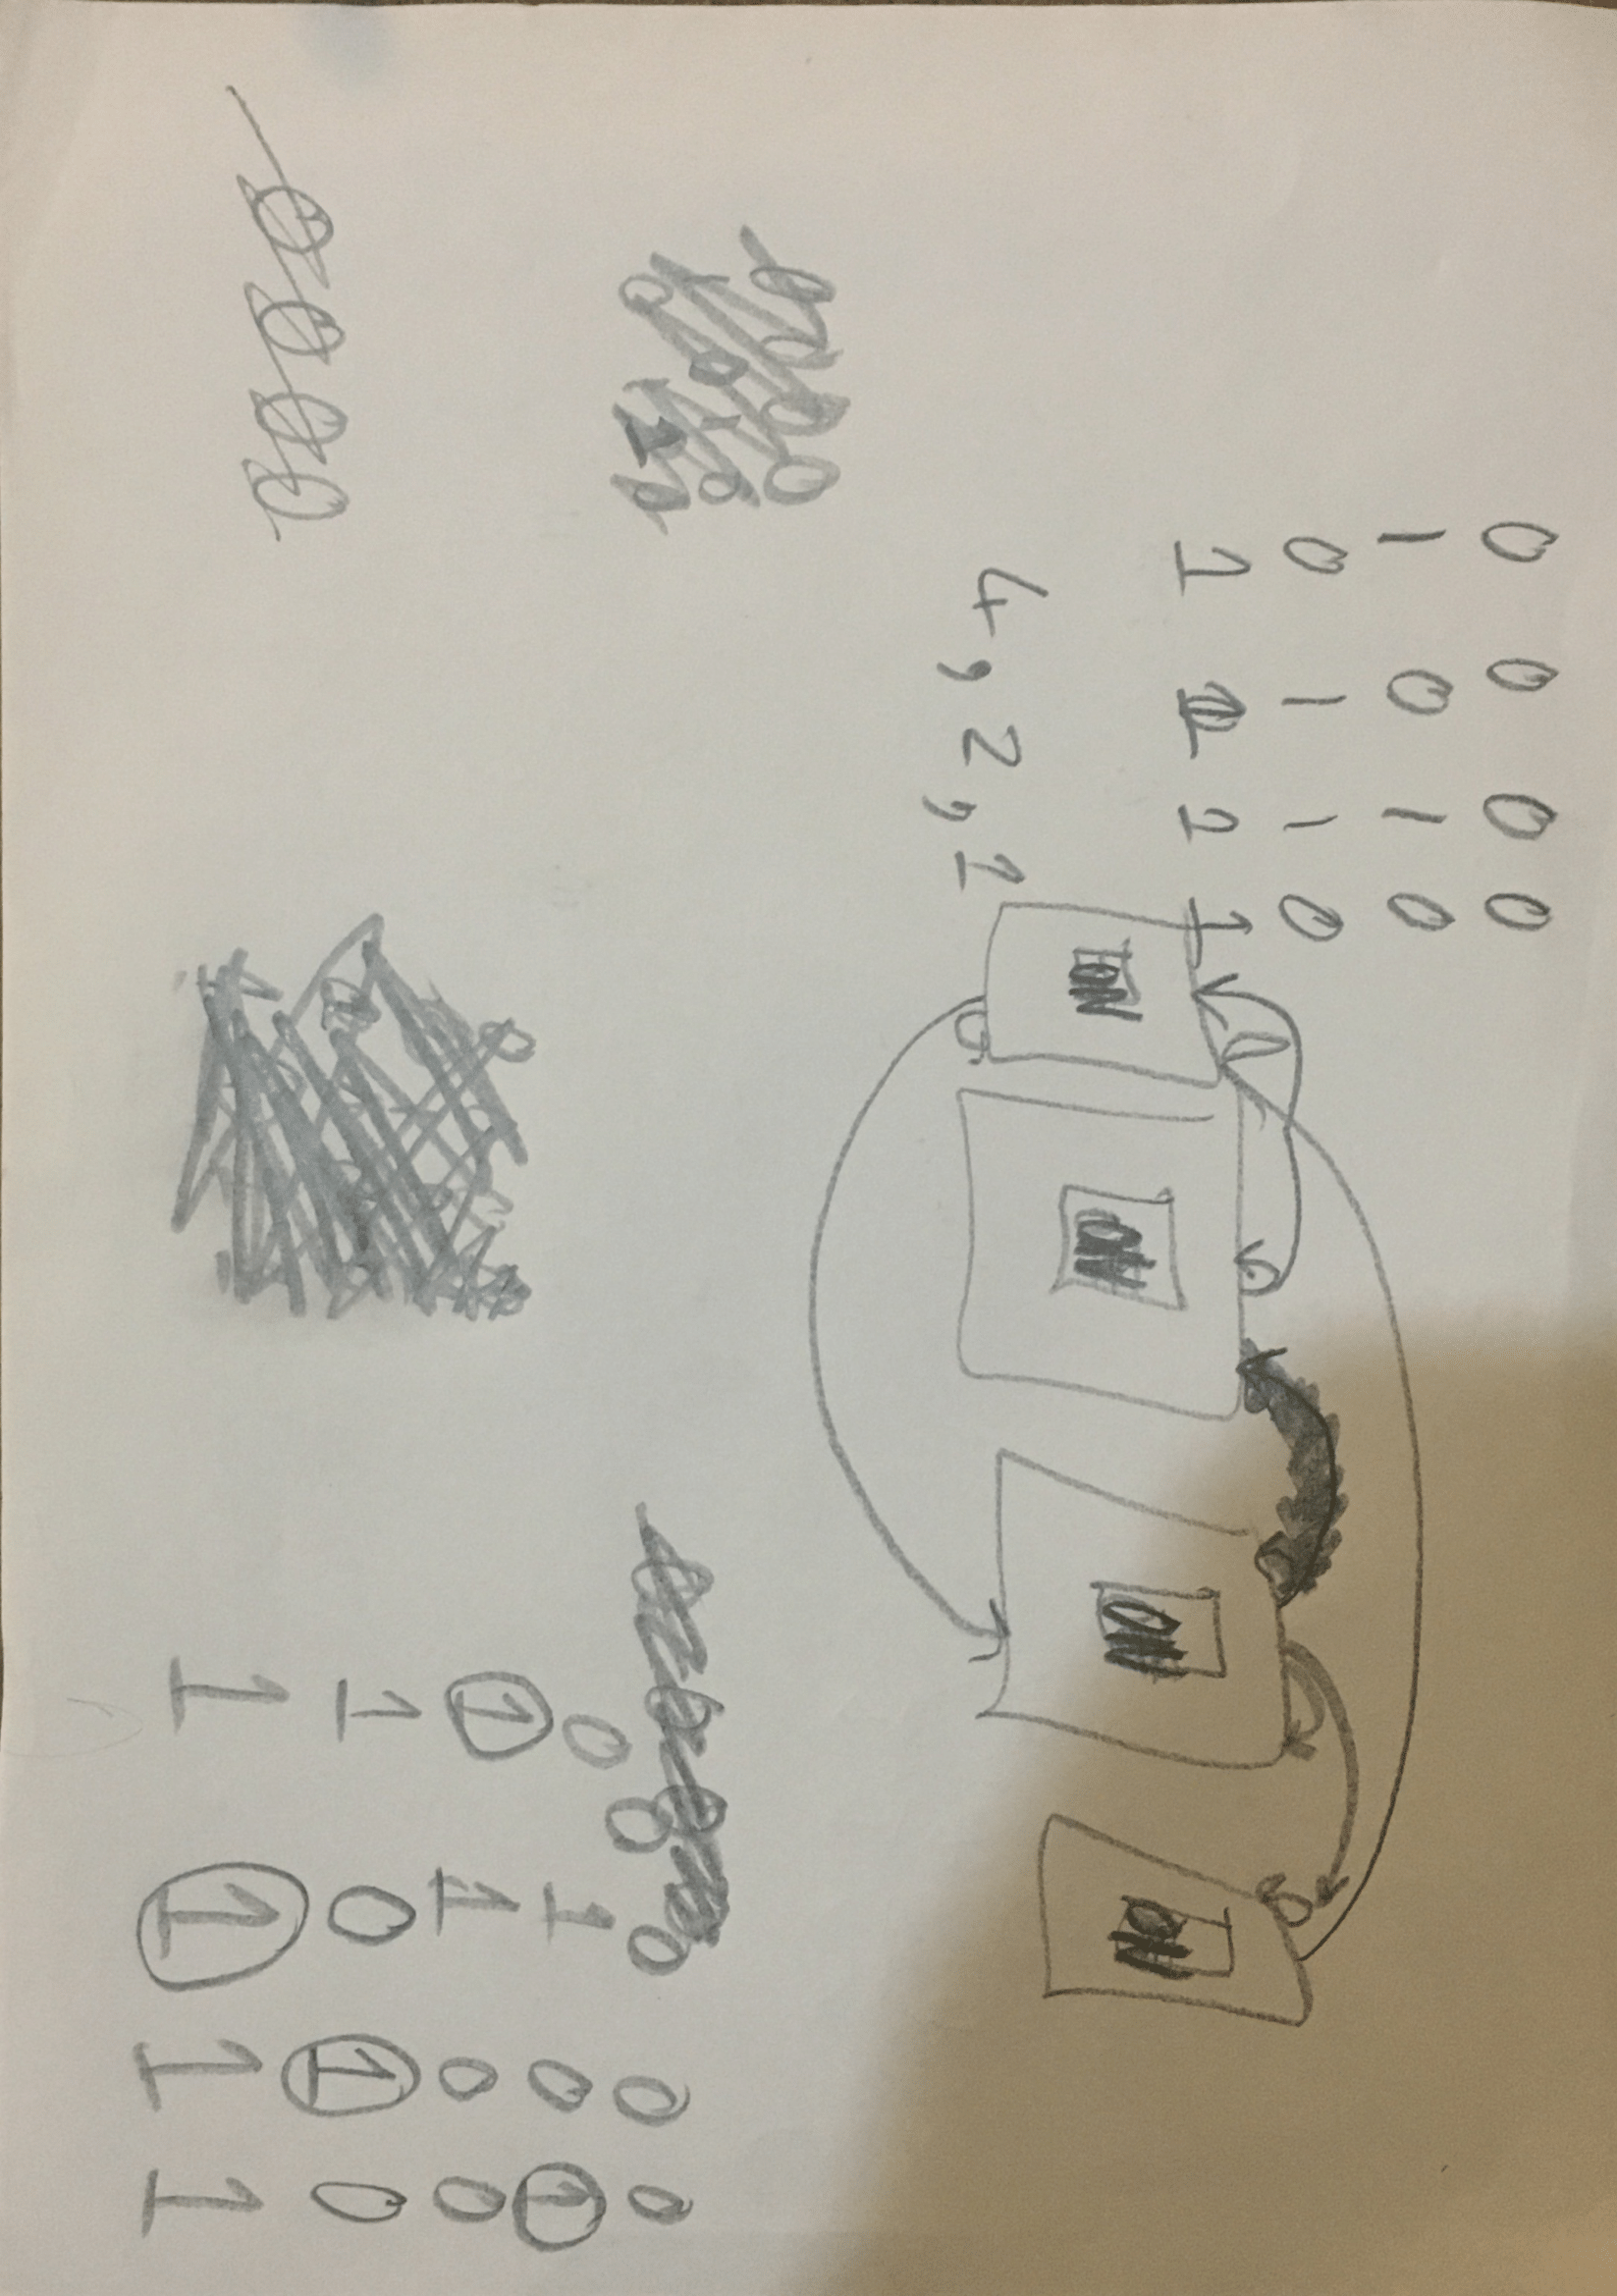 0 0 0 0
1 0 1 0
0 1 1 0
1 1 2 1
4, 2, 1
ON ON ON ON
0 0 0 0
0 1 0 1
1 1 0 0
1 0 1 0
1 1 1 1